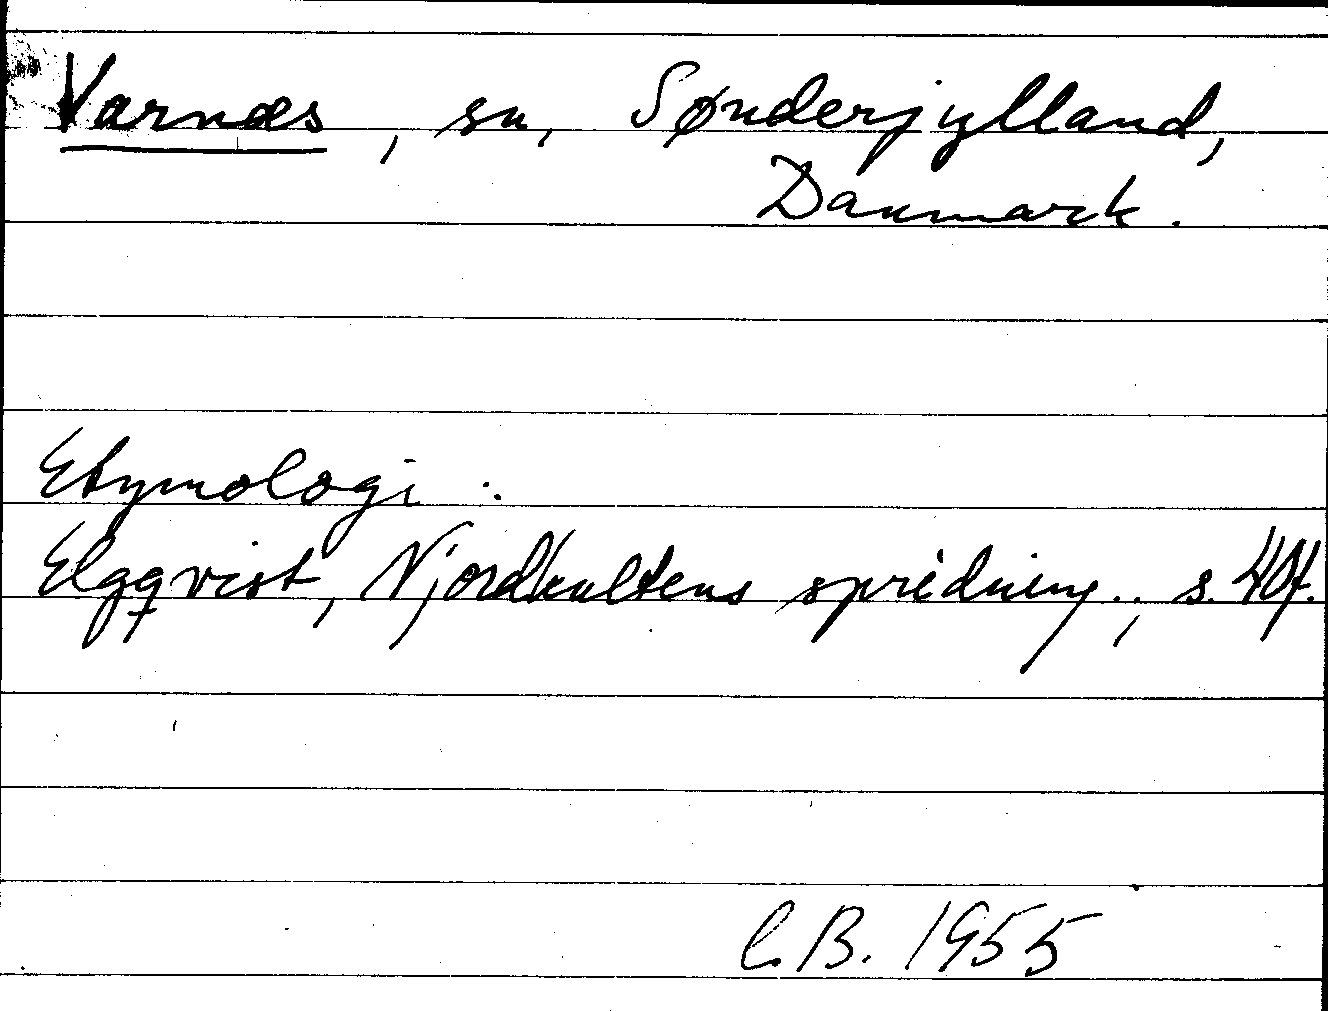 Varnæs, sn, Sønderjylland,
Danmark.
Etymologi:
Elgqvist, Njordkultens spridning.., s. 40f.
C.B. 1955